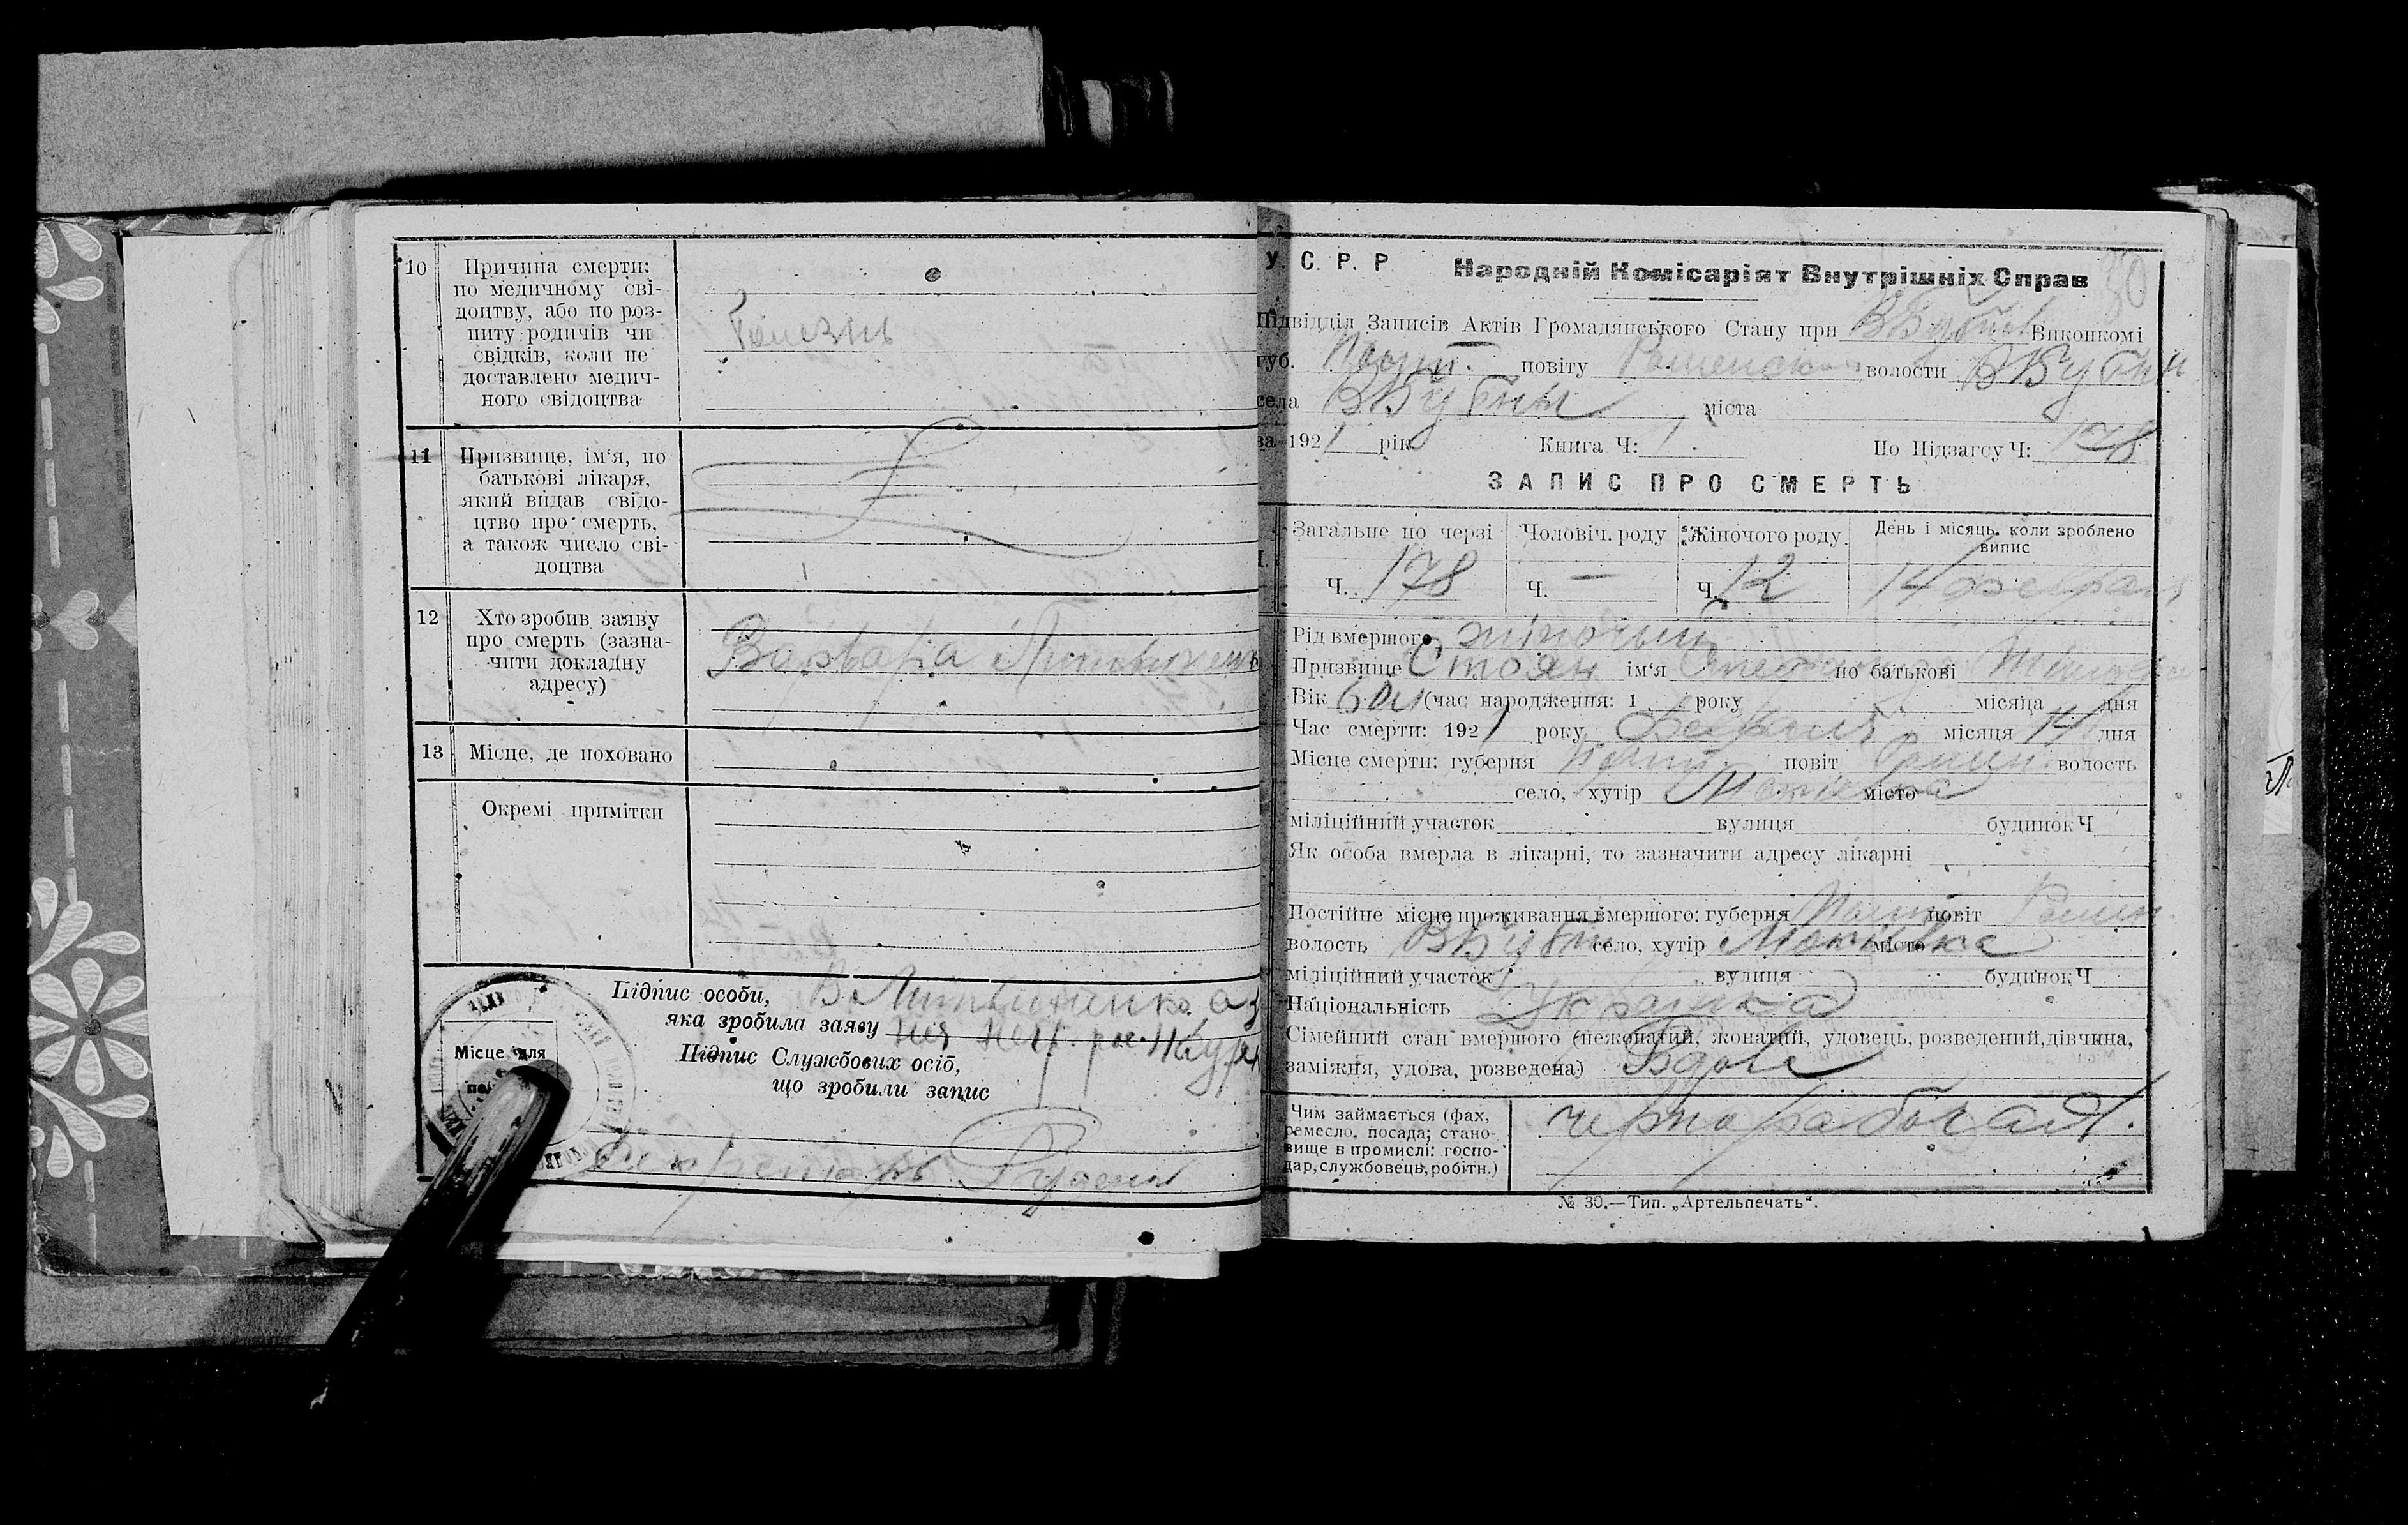 10
Причина смерти:
по медичному сві-
доцтву, або по роз-
питу родичів чи
свідків, коли не
доставлено медич-
ного свідоцтва
Болезнь
11
Призвище, ім‘я, по
батькові лікаря,
який видав свідо-
цтво про смерть,
а також число сві-
доцтва
12
Хто зробив заяву
про смерть (зазна-
чити докладну
адресу)
Варвара
13
Місце, де поховано
Окремі примітки
Підпис особи,
яка зробила заяву
Підпис Службових осіб,
що зробили запис
Місце для
Секретарь
У. С. Р. Р
Народній Комісаріят Внутрішніх Справ
Підвідділ Записів Актів Громадянського Стану при ВБубнів Виконкомі
губ. Полт. повіту Роменскаго волости ВБубни
села ВБубни міста
за 1921 рік Книга Ч: 1 По Підзагсу Ч: 178
ЗАПИС ПРО СМЕРТЬ
Загальне по черзі Чоловіч. роду Жіночого роду. День і місяць, коли зроблено випис
Ч. 178 Ч. — Ч. 12 14 февраля
Рід вмершого жіночий
Призвище Стоян ім‘я по батькові
Вік 60л (час народження: 1 року місяца дня
Час смерти: 1921 року Февраля місяця 14 дня
Місце смерти: губерня Полт. повіт Ромен. волость
село, хутір місто
міліційний участок вулиця будинок Ч
Як особа вмерла в лікарні, то зазначити адресу лікарні
Постійне місце проживання вмершого: губерня Полт. повіт Ромен.
волость ВБубн село, хутір Мокіївка місто
міліційний участок вулиця будинок Ч
Національність Українка
Сімейний стан вмершого (нежонатий, жонатий, удовець, розведений, дівчина,
заміжня, удова, розведена) Вдова
Чим займається (фах,
ремесло, посада; стано-
вище в промислі: госпо-
дар, службовець, робітн.)
чернорабочая.
№ 30.—Тип. „Артельпечать“.